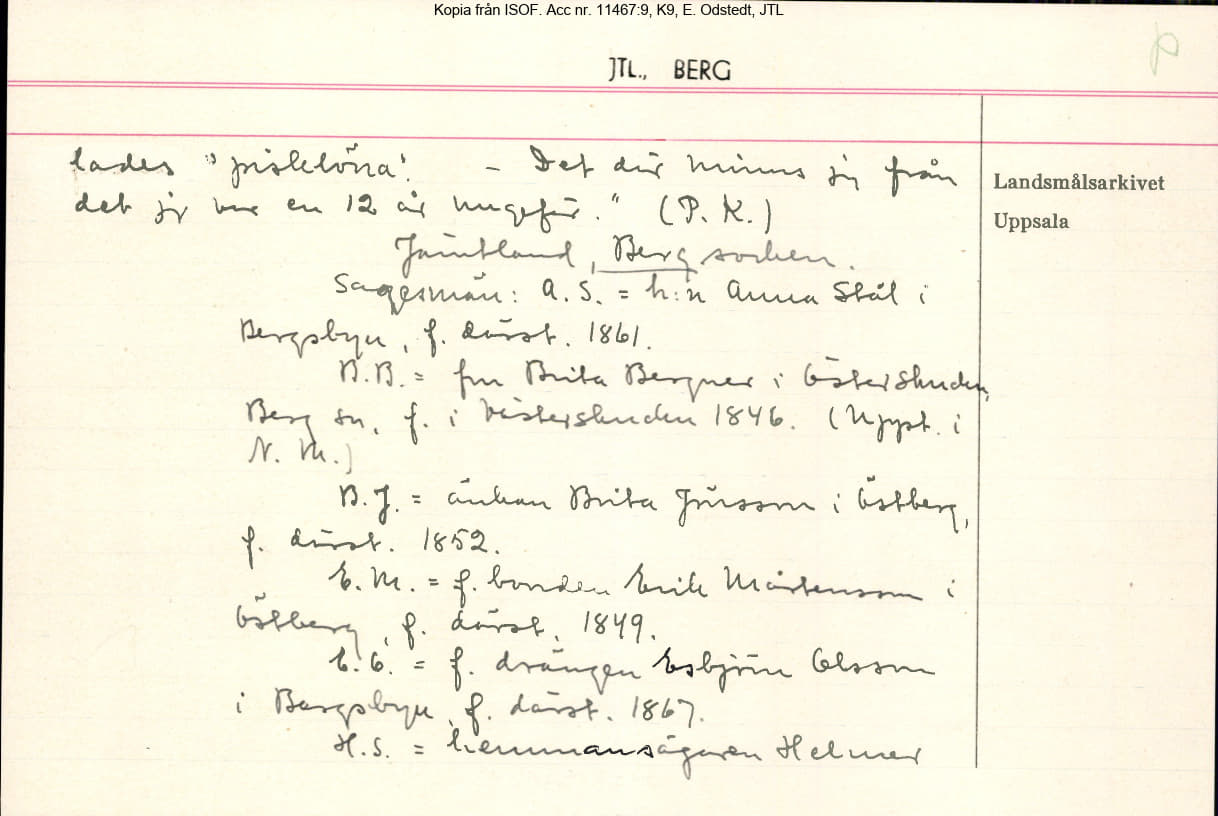 Kopia från ISOF. Acc nr. 11467:9, K9, E. Odstedt, JTL
JTL., BERG
lades "pisklöna". – Det där minns jag från
det jag var en 12 år ungefär." (P. K.)
Jämtland, Berg socken.
Sagesmän: A. S. = h:n Anna Stål i
Bergsbyn, f. därst. 1861.
B. B. = fru Brita Bergner i Österskuden,
Berg sn, f. i Västerskuden 1846. (Uppt. i
N. M.)
B. J. = änkan Brita Jönsson i Östberg,
f. därst. 1852.
E. M. = f. bonden Erik Mårtensson i
Östberg, f. därst. 1849.
E. O. = f. drängen Esbjörn Olsson
i Bergsbyn, f. därst. 1867.
H. S. = hemmansägaren Helmer
Landsmålsarkivet
Uppsala